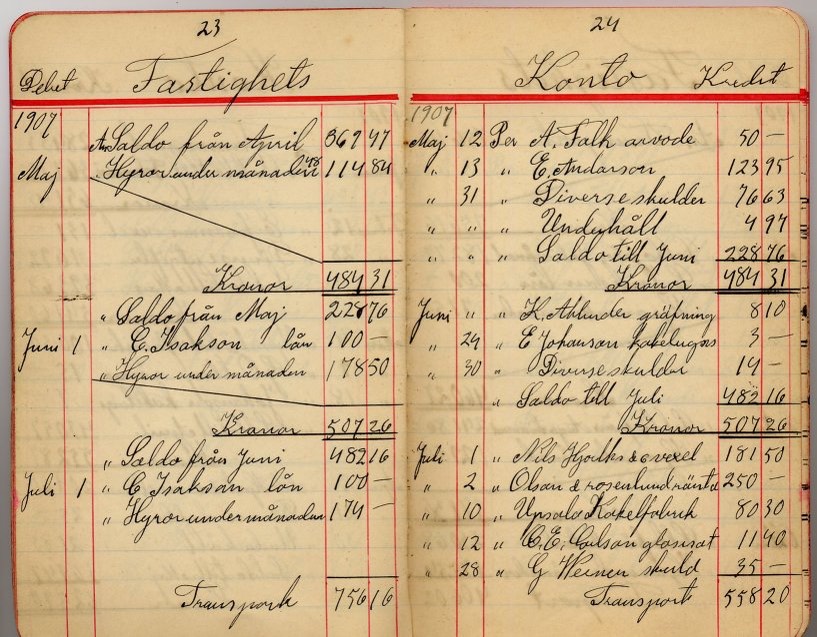 23
Debet Fastighets
1907
An Saldo från April 369 47
Maj " Hyror under månaden 114 84
Kronor 484 31
" Saldo från Maj 228 76
Juni 1 " C. Isakson lån 100 —
" Hyror under månaden 178 50
Kronor 507 26
" Saldo från Juni 482 16
Juli 1 " C Isakson lån 100 —
" Hyror under månaden 174 —
Transport 756 16
24
Konto Kredit
1907
Maj 12 Per A. Falk arvode 50 —
" 13 " E. Andarson 123 95
" 31 " Diverse skulder 76 63
" " " Underhåll 4 97
" " " Saldo till Juni 228 76
Kronor 484 31
Juni " " K. Ahlinder gräfning 8 10
" 29 " E Johanson kakelugns 3 —
" 30 " Diverse skulder 14 —
" Saldo till Juli 482 16
Kronor 507 26
Juli 1 " Nils vexel 181 50
" 2 " Olson & rosenlund ränta 250 —
" 10 " Upsala Kakelfabrik 80 30
" 12 " C. E. Carlson glaserat 11 40
" 28 " G skuld 35 —
Transport 558 20